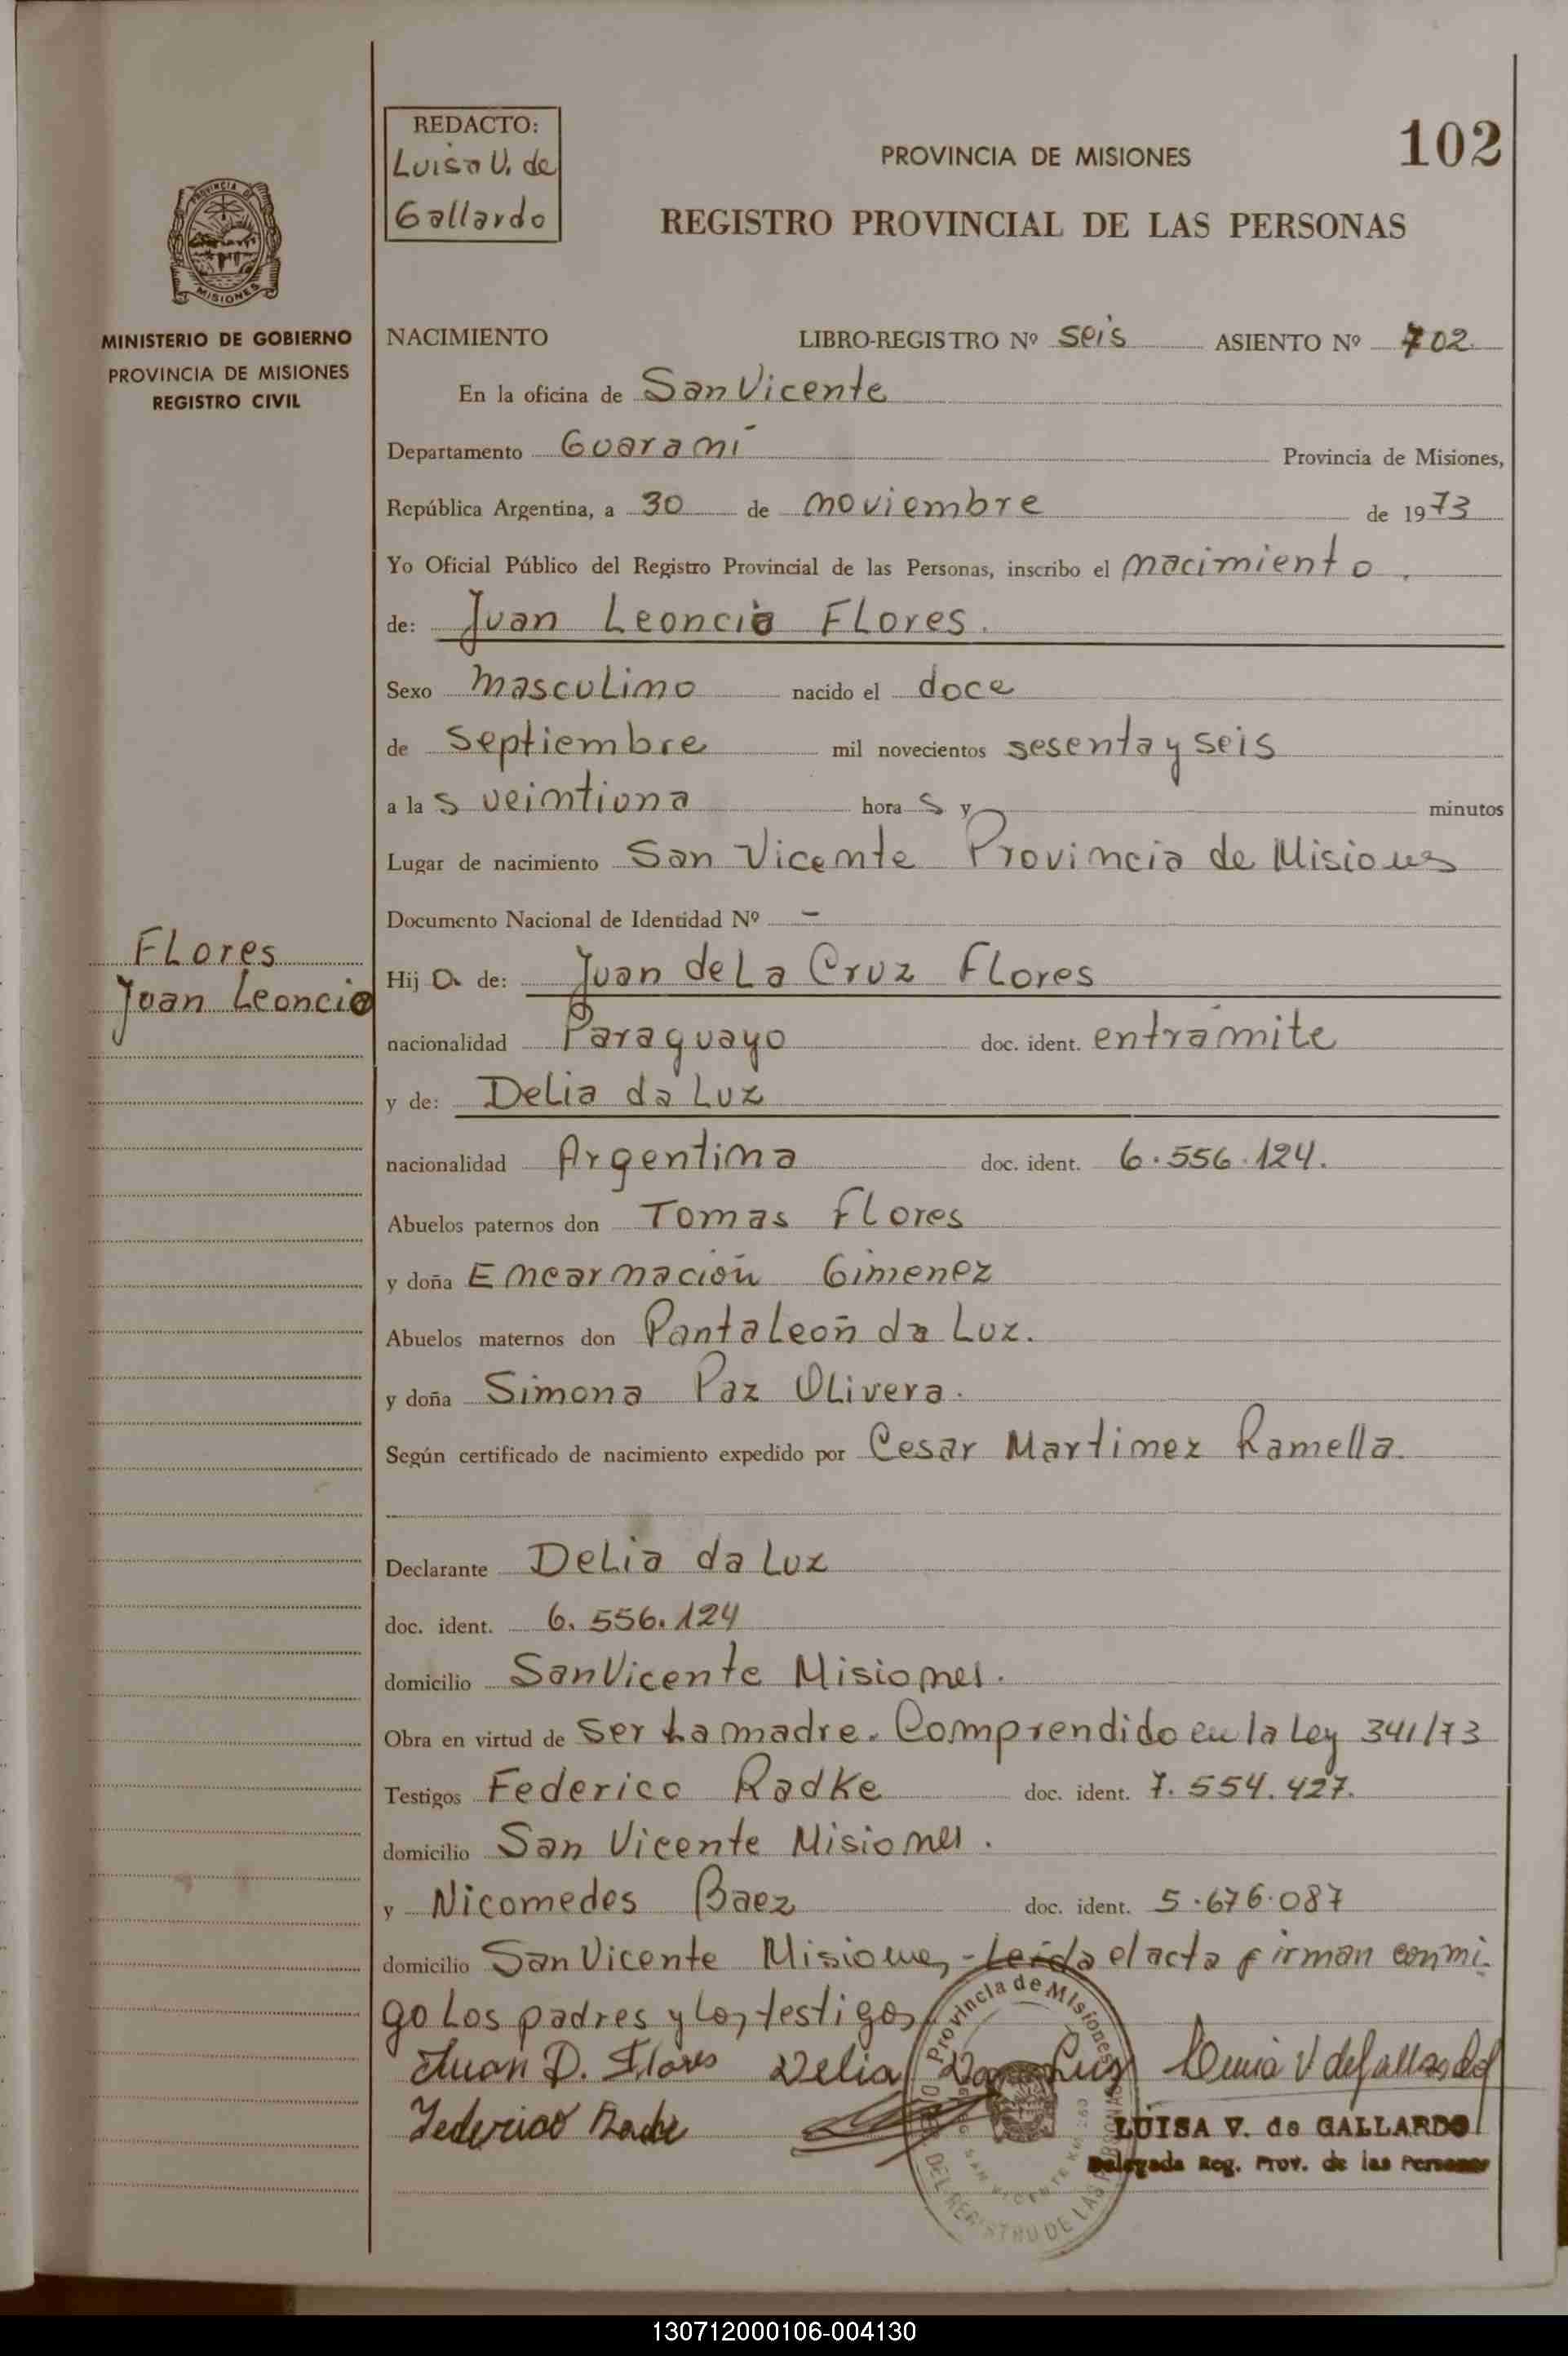 102
REDACTO:
Luisa V. de
Gallardo
PROVINCIA DE MISIONES
REGISTRO PROVINCIAL DE LAS PERSONAS
PROVINCIA DE
MISIONES
MINISTERIO DE GOBIERNO
PROVINCIA DE MISIONES
REGISTRO CIVIL
NACIMIENTO LIBRO-REGISTRO Nº seis ASIENTO Nº 702.
En la oficina de San Vicente
Departamento Guaraní Provincia de Misiones,
República Argentina, a 30 de noviembre de 1973
Yo Oficial Público del Registro Provincial de las Personas, inscribo el nacimiento.
de: Juan Leoncio FLores.
Sexo masculino nacido el doce
de septiembre mil novecientos sesenta y seis
a las veintiuna horas y minutos
Lugar de nacimiento San Vicente Provincia de Misiones
Documento Nacional de Identidad Nº -
FLores
Juan Leoncio
Hijo. de: Juan de La Cruz Flores
nacionalidad Paraguayo doc. ident. entramite
y de: Delia da Luz
nacionalidad Argentina doc. ident. 6.556.124.
Abuelos paternos don Tomas Flores
y doña Encarnación Gimenez
Abuelos maternos don Pantaleon da Luz.
y doña Simona Paz Olivera.
Según certificado de nacimiento expedido por Cesar Martinez Ramella.
Declarante Delia da Luz
doc. ident. 6.556.124
domicilio San Vicente Misiones.
Obra en virtud de ser La madre. Comprendido en la Ley 341/73
Testigos Federico Radke doc. ident. 7.554.427.
domicilio San Vicente Misiones.
y Nicomedes Baez doc. ident. 5.676.087
domicilio San Vicente Misiones, - Leída el acta firman conmi-
go Los padres y los testigos
Juan D. Flores Delia Da Luz Luisa V de Gallardo
Federico Radke
Provincia de Misiones
DEL REGISTRO DE LAS PERSONAS
SAN VICENTE
LUISA V. de GALLARDO
Delegada Reg. Prov. de las Personas
130712000106-004130